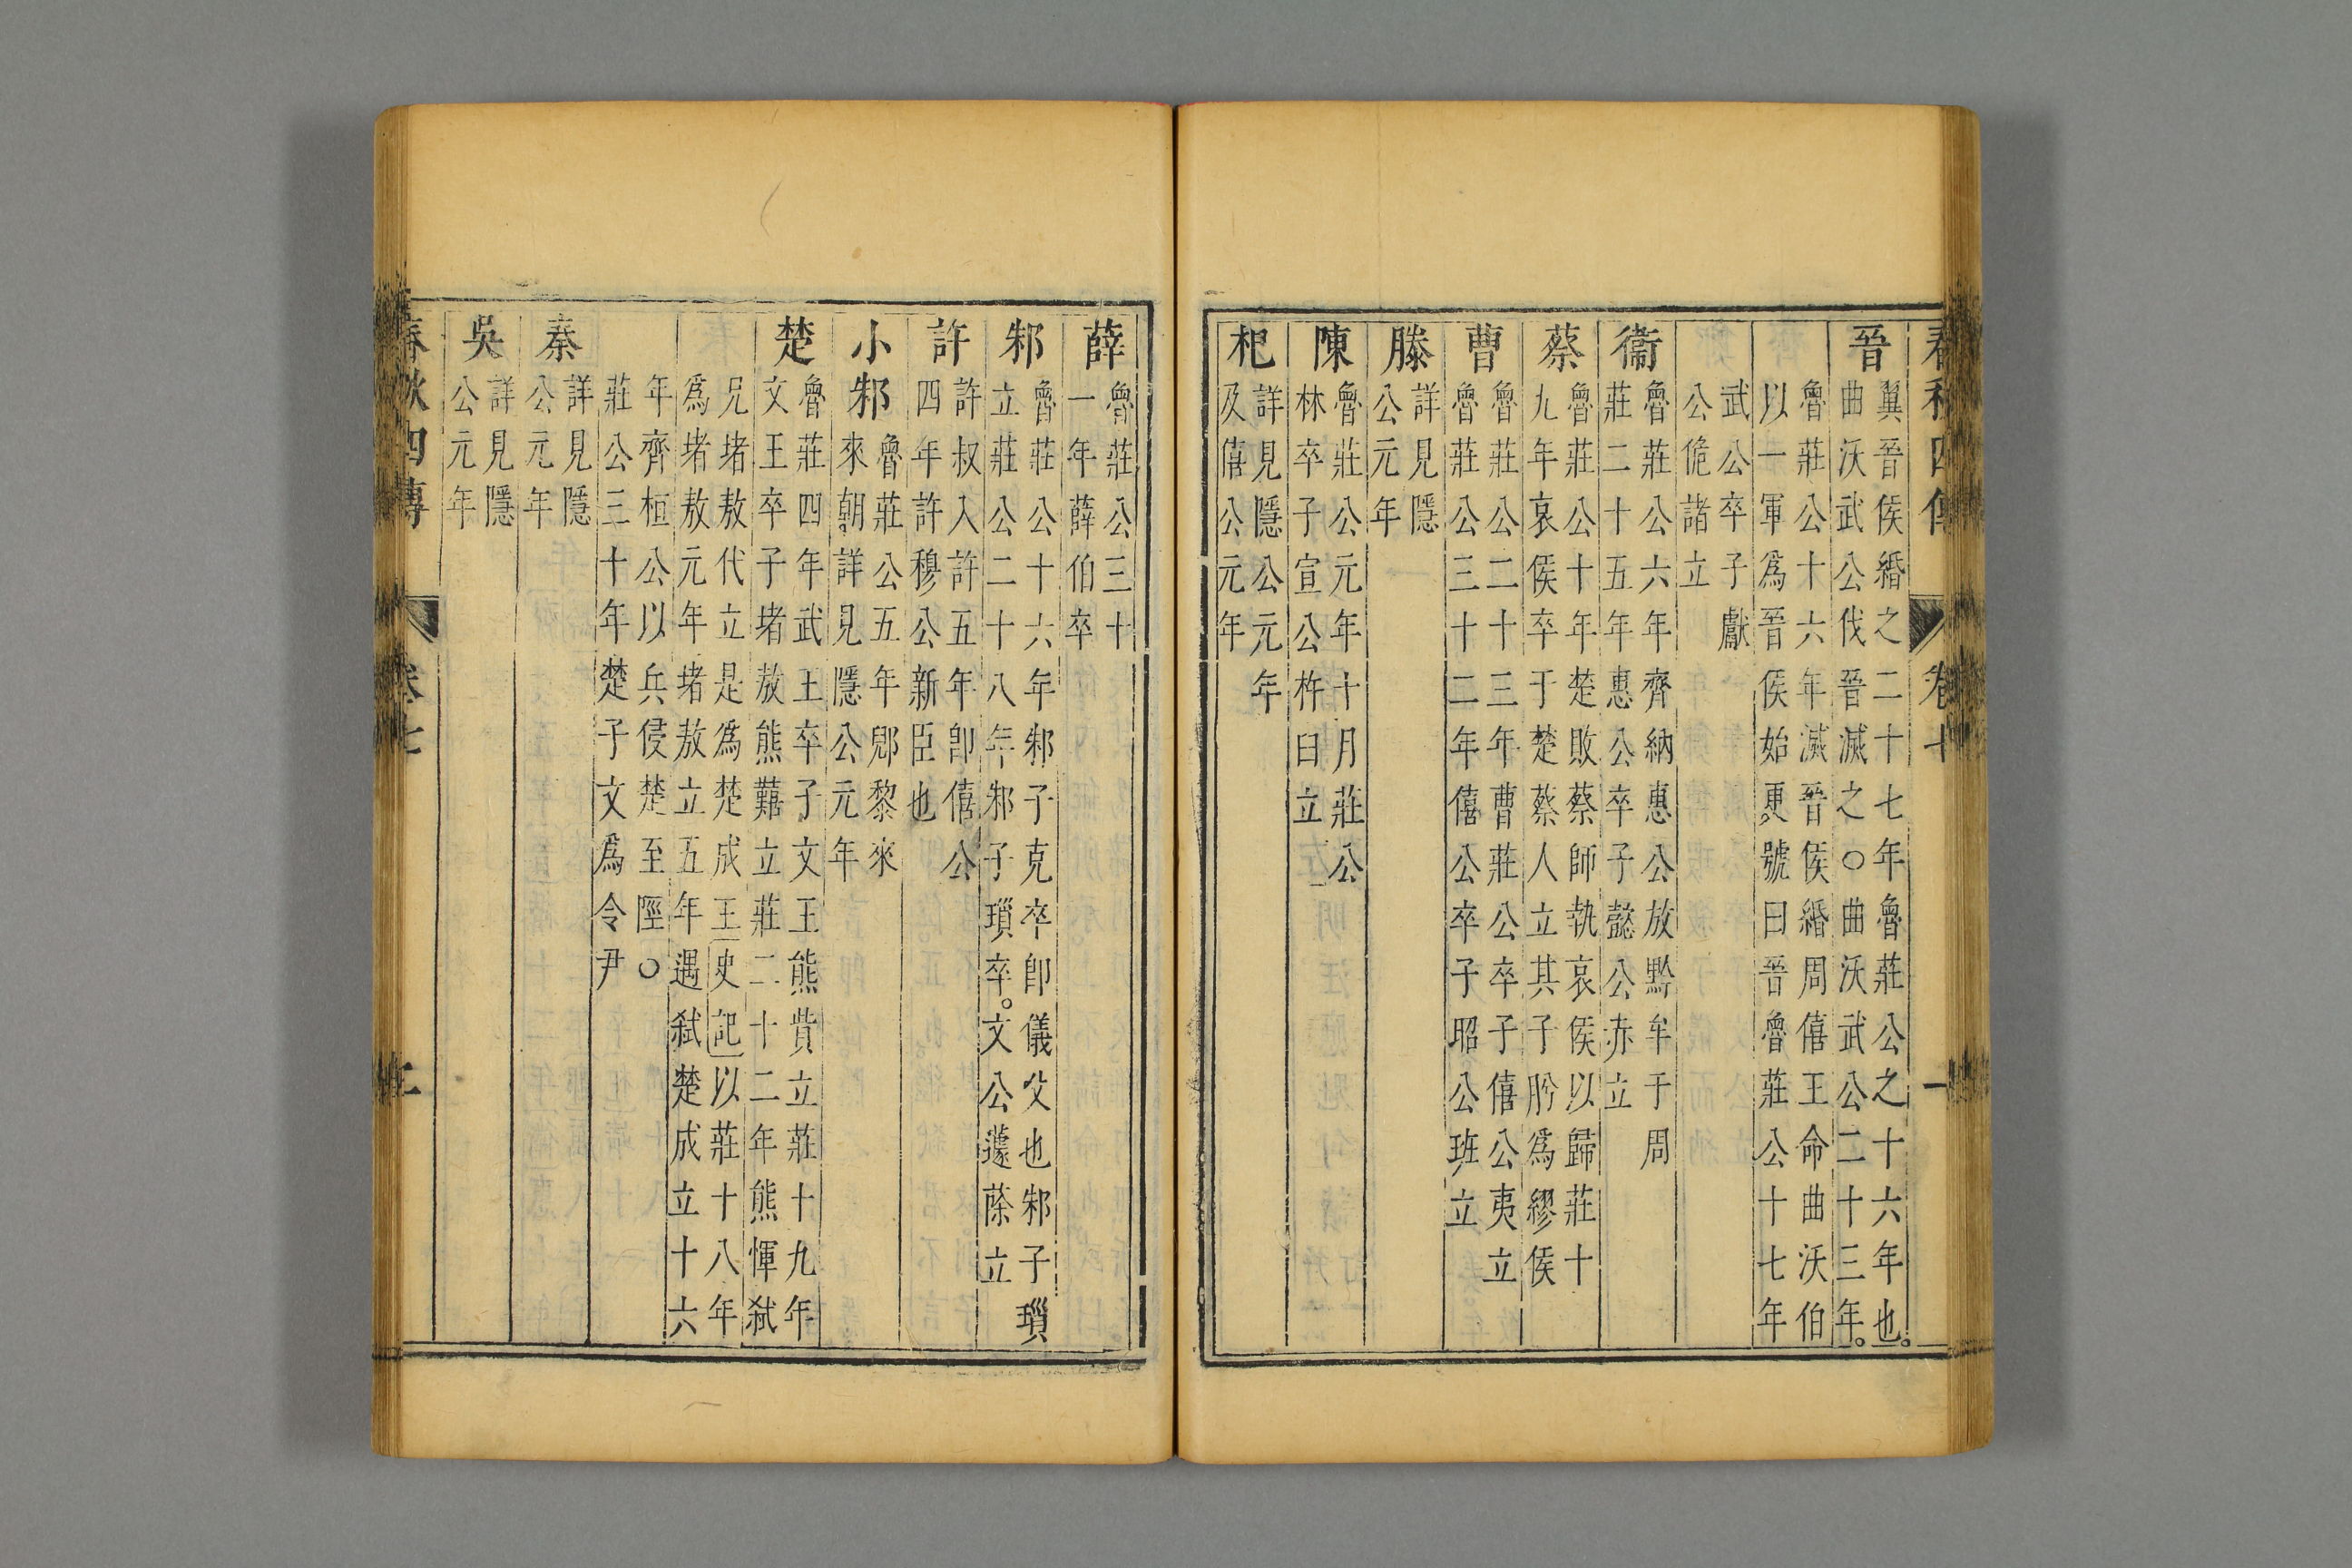 春秋四傳 卷七 一
晉
翼晉侯緡之二十七年魯莊公之十六年也。
曲沃武公伐晉滅之○曲沃武公二十三年。
魯莊公十六年滅晉侯緡周僖王命曲沃伯
以一軍爲晉侯始更號曰晉魯莊公十七年
武公卒子獻
公佹諸立
衞
魯莊公六年齊納惠公放黔牟于周
莊二十五年惠公卒子懿公赤立
蔡
魯莊公十年楚敗蔡師執哀侯以歸莊十
九年哀侯卒于楚蔡人立其子肹爲繆侯
曹
魯莊公二十三年曹莊公卒子僖公夷立
魯莊公三十二年僖公卒子昭公班立
滕
詳見隱
公元年
陳
魯莊公元年十月莊公
林卒子宣公杵臼立
杞
詳見隱公元年
及僖公元年
薛
魯莊公三十
一年薛伯卒
邾
魯莊公十六年邾子克卒卽儀父也邾子瑣
立莊公二十八年邾子瑣卒。文公蘧蒢立
許
許叔入許五年卽僖公
四年許穆公新臣也
小邾
魯莊公五年郳黎來
來朝詳見隱公元年
楚
魯莊四年武王卒子文王熊貲立莊十九年
文王卒子堵敖熊囏立莊二十二年熊惲弑
兄堵敖代立是爲楚成王史記以莊十八年
爲堵敖元年堵敖立五年遇弑楚成立十六
年齊桓公以兵侵楚至陘○
莊公三十年楚子文爲令尹
秦
詳見隱
公元年
吳
詳見隱
公元年
春秋四傳 卷七 二